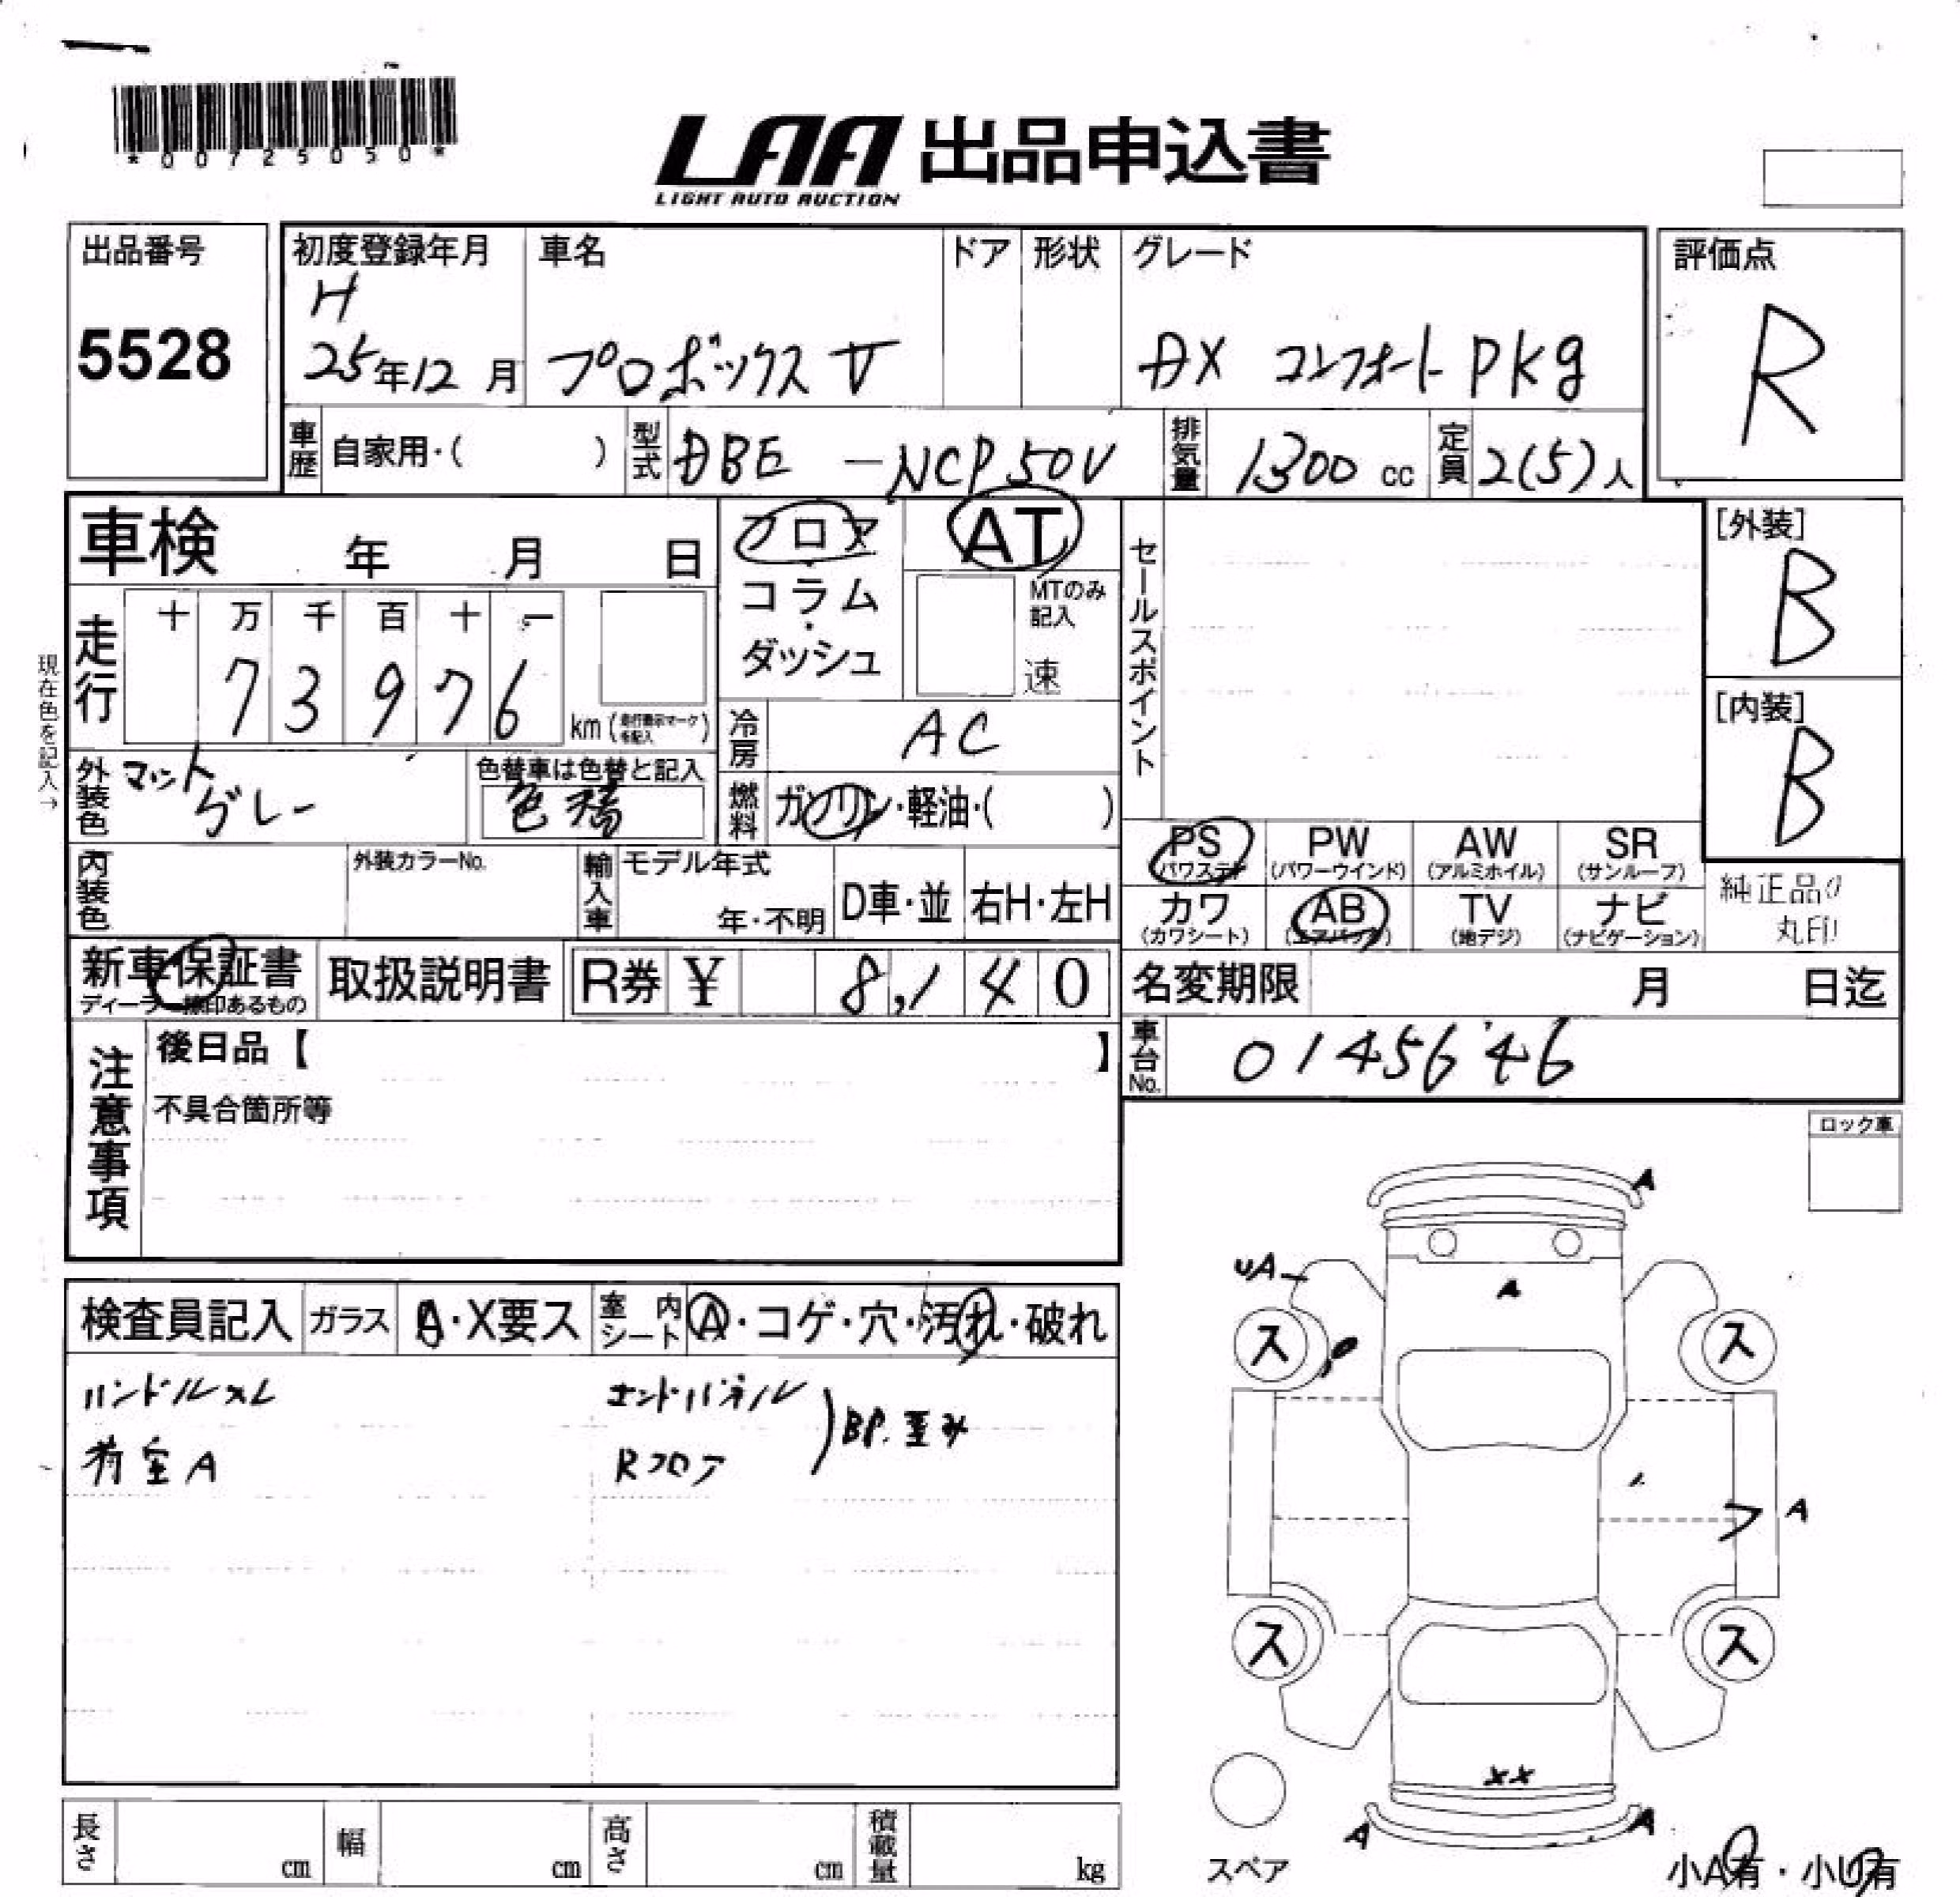 *00725050*
LAA 出品申込書
LIGHT AUTO AUCTION
出品番号
5528
初度登録年月
H
25年12月
車名
プロボックスV
ドア
形状
グレード
DX コンフォートpkg
評価点
R
車歴
自家用・( )
型式
DBE-NCP50V
排気量
1300 cc
定員
2(5)人
車検 年 月 日
フロア
コラム
・
ダッシュ
AT
MTのみ記入
速
セールスポイント
[外装]
B
[内装]
B
現在色を記入→
走行
十 万 千 百 十 一
7 3 9 7 6
km (走行表示マークを記入)
冷房
AC
外装色
マットグレー
色替車は色替と記入
色替
燃料
ガソリン・軽油・( )
PS (パワステ)
PW (パワーウインド)
AW (アルミホイル)
SR (サンルーフ)
カワ (カワシート)
AB (エアバッグ)
TV (地デジ)
ナビ (ナビゲーション)
純正品の
丸印
内装色
外装カラーNo.
輸入車
モデル年式
年・不明
D車・並
右H・左H
新車保証書
取扱説明書
R券 ¥ 8,140
名変期限 月 日迄
車台No.
0145646
注意事項
後日品【 】
不具合箇所等
ロック車
検査員記入
ガラス
A・X要ス
室内シート
A・コゲ・穴・汚れ・破れ
ハンドルスレ
荷室A
エンドパネル
Rフロア
BP.歪み
A
UA
A
ス
ス
A
ス
ス
XX
A
A
スペア
小A有・小U有
長さ cm
幅 cm
高さ cm
積載量 kg